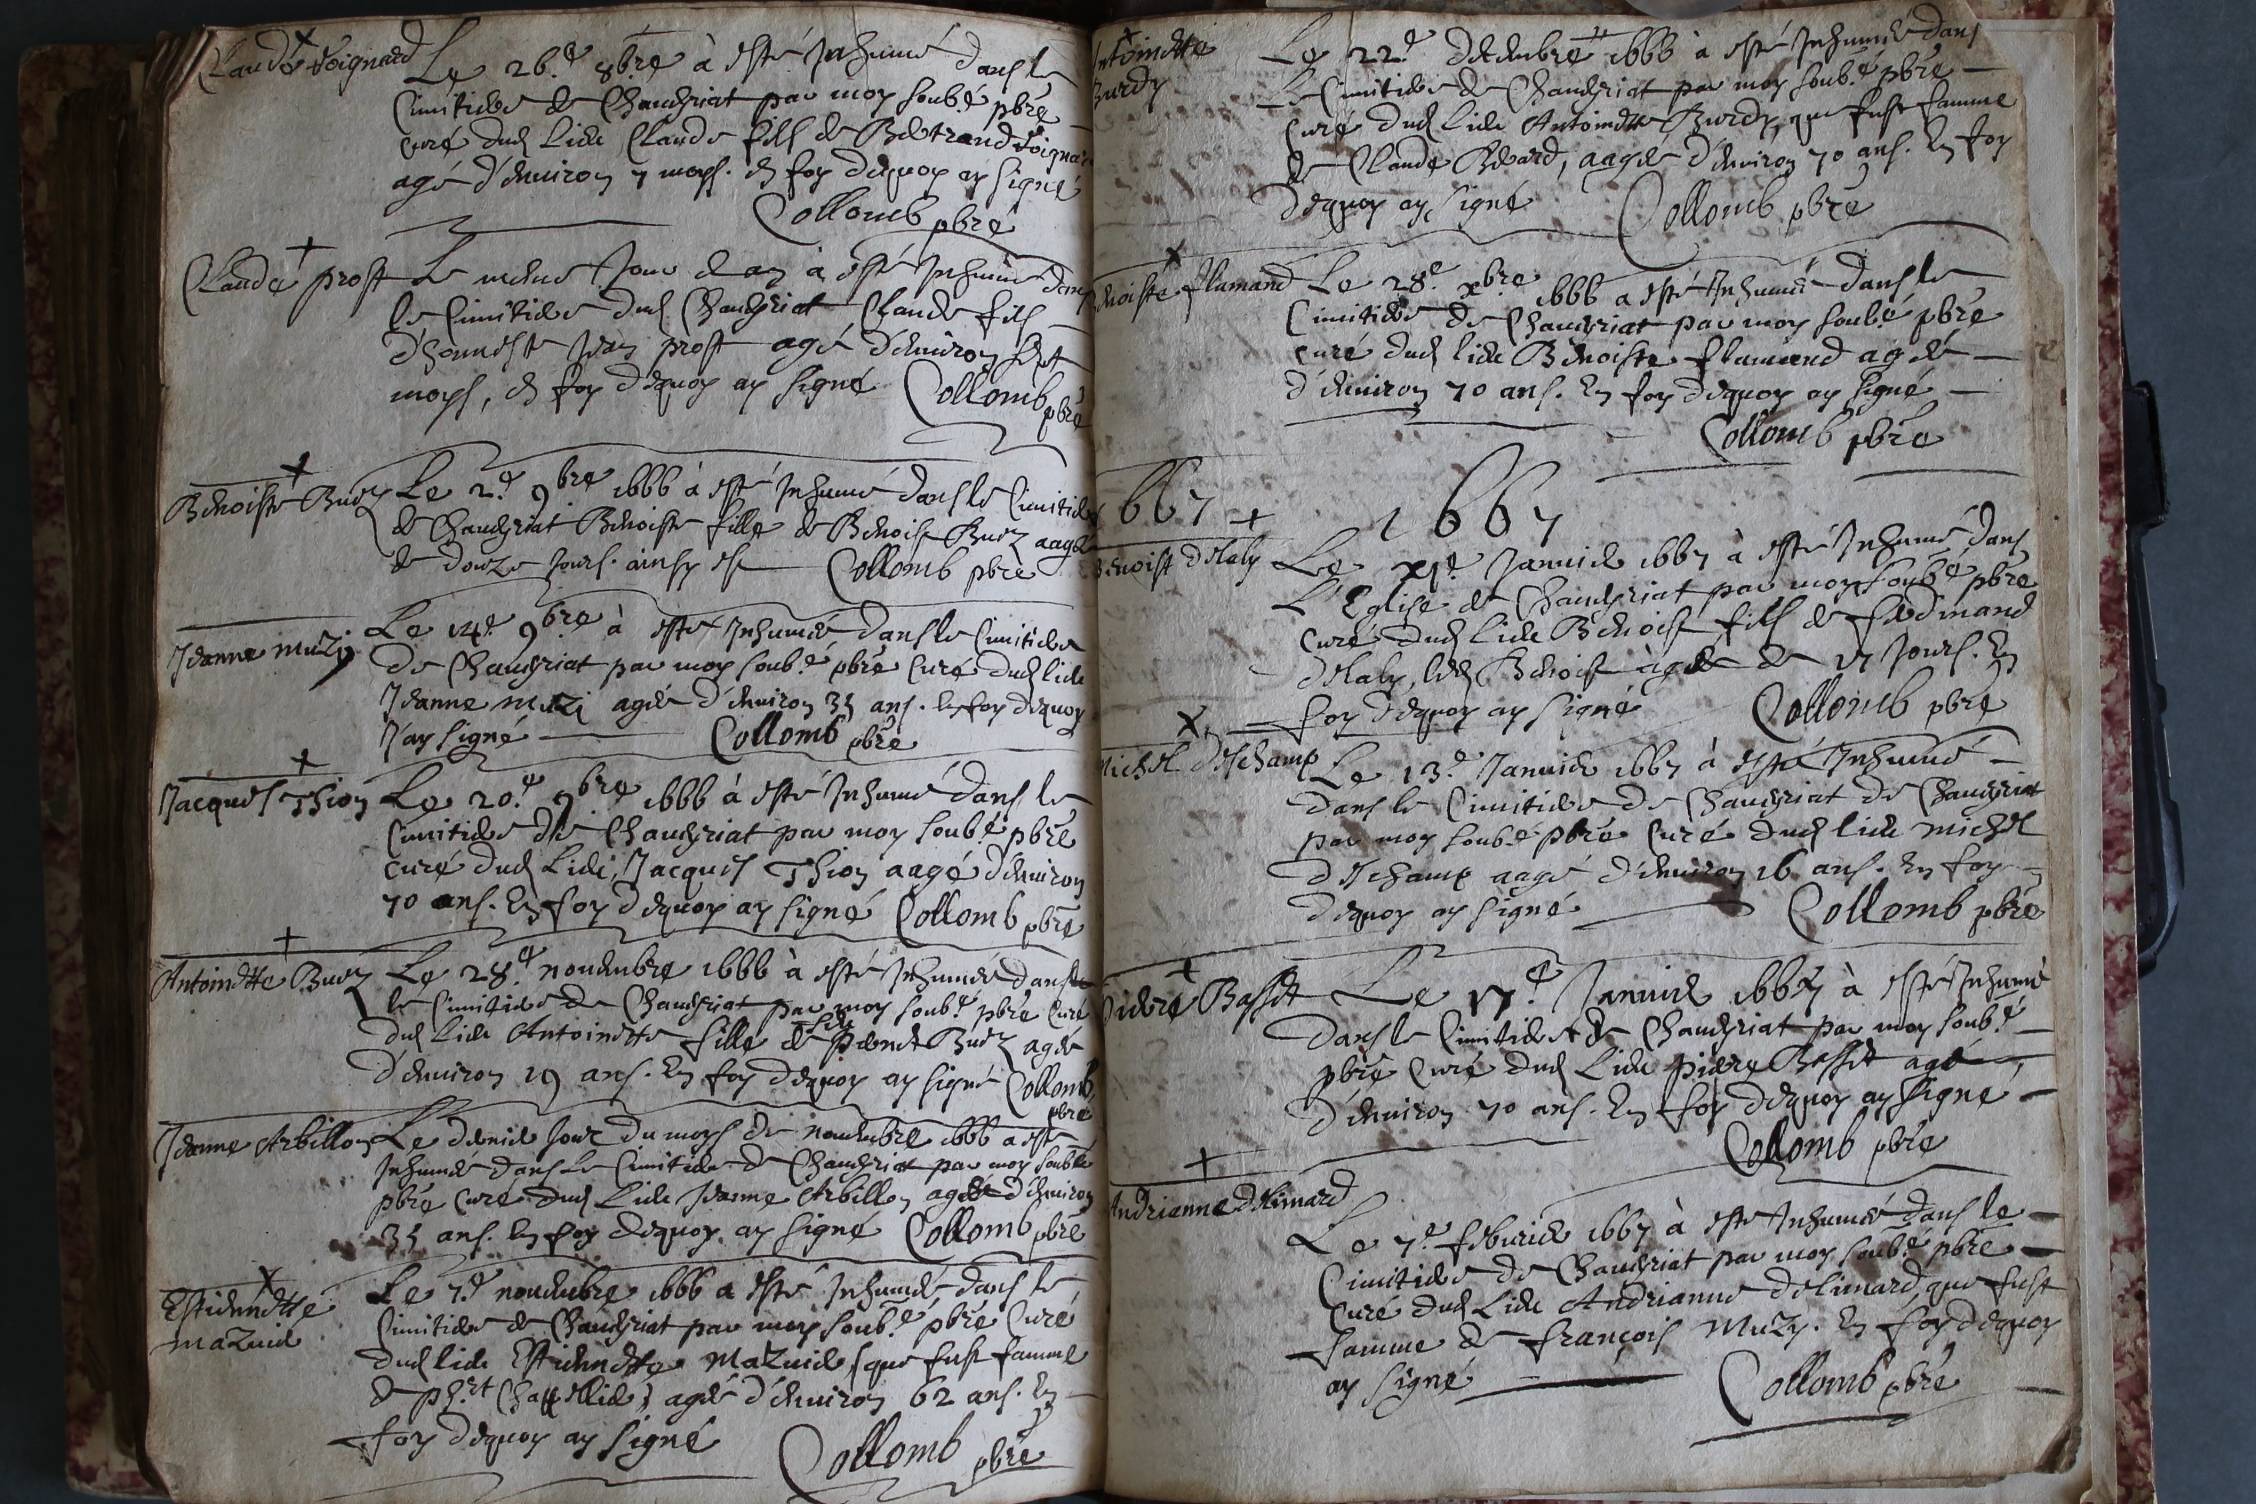 Claude Soignard
Le 26.e 8bre à esté Inhumé dans le
Cimitiere de Chaveyriat par moy soub.é pbre
curé dud. Lieu Claude fils de Bertrand Soignard
agé d'environ 7 moys. En foy dequoy ay signé
Collomb pbre
Claude prost
Le mesme Jour et an à esté Inhumé dans
le Cimitiere dud. Chaveyriat Claude fils
d'honneste Jean prost agé d'environ sept
moys, En foy dequoy ay signé Collomb pbre
Benoiste Buez
Le 2.e 9bre 1666 à esté Inhumé dans le Cimitiere
de Chaveyriat Benoiste fille de Benoist Buez aagée
de douze Jours. ainsy est Collomb pbre
Jeanne muzi
Le 14.e 9bre à esté Inhumée dans le Cimitiere
de Chaveyriat par moy soub.é pbre Curé dud. lieu
Jeanne muzi agée d'environ 35 ans. En foy dequoy
J'ay signé Collomb pbre
Jacques Thion
Le 20.e 9bre 1666 à esté Inhumé dans le
Cimitiere de Chaveyriat par moy soub.é pbre
curé dud. Lieu, Jacques Thion aagé d'environ
70 ans. En foy dequoy ay signé Collomb pbre
Antoinette Buez
Le 28.e novembre 1666 à esté Inhumée dans
le Cimitiere de Chaveyriat par moy soub.é pbre Curé
dud. Lieu Antoinette fille de Buez agée
d'environ 19 ans. En foy dequoy ay signé Collomb
pbre
Jeanne Arbillon
Le dernier Jour du moys de novembre 1666 a esté
Inhumée dans le Cimitiere de Chaveyriat par moy soub.é
pbre Curé dud. Lieu Jeanne Arbillon agée d'environ
35 ans. En foy dequoy ay signé Collomb pbre
Estiennette
mazuier
Le 7.e novembre 1666 a esté Inhumée dans le
Cimitiere de Chaveyriat par moy soub.é pbre Curé
dud. lieu Estiennette Mazuier (que fust famme
de agée d'environ 62 ans. En
foy dequoy ay signé
Collomb pbre
Antoinette
Burdy
Le 22.e Decembre 1666 à esté Inhumée dans
Le Cimitiere de Chaveyriat par moy soub.é pbre
Curé dud. Lieu Antoinette Burdy, que fust famme
de Claude Berard, aagée d'environ 70 ans. En foy
dequoy ay signé Collomb pbre
Benoiste flamand
Le 28.e xbre 1666 a esté Inhumée dans le
Cimitiere de Chaveyriat par moy soub.é pbre
curé dud. lieu Benoiste flamand agée
d'environ 70 ans. En foy dequoy ay signé
Collomb pbre
667
1667
Benoist delaly
Le xj.e Janvier 1667 à esté Inhumé dans
L'Eglise de Chaveyriat par moy soub.é pbre
curé dud. lieu Benoist fils de ferdinand
delaly, led. Benoist âgé de 17 Jours. En
foy dequoy ay signé Collomb pbre
Michel deschamp
Le 13.e Janvier 1667 à esté Inhumé
dans le Cimitiere de Chaveyriat de Chaveyriat
par moy soub.é pbre Curé dud. lieu michel
deschamp aagé d'environ 16 ans. En foy
dequoy ay signé Collomb pbre
Pierre Basset
Le 17.e Janvier 1667 à esté Inhumé
dans le Cimitiere de Chaveyriat par moy soub.é
pbre Curé dud. Lieu pierre Basset agé
d'environ 70 ans. En foy dequoy ay signé
Collomb pbre
Andrianne delimard
Le 7.e febvrier 1667 à esté Inhumée dans le
Cimitiere de Chaveyriat par moy soub.é pbre
Curé dud. Lieu Andrianne delimard, que fust
famme de françois Muzy. En foy dequoy
ay signé Collomb pbre